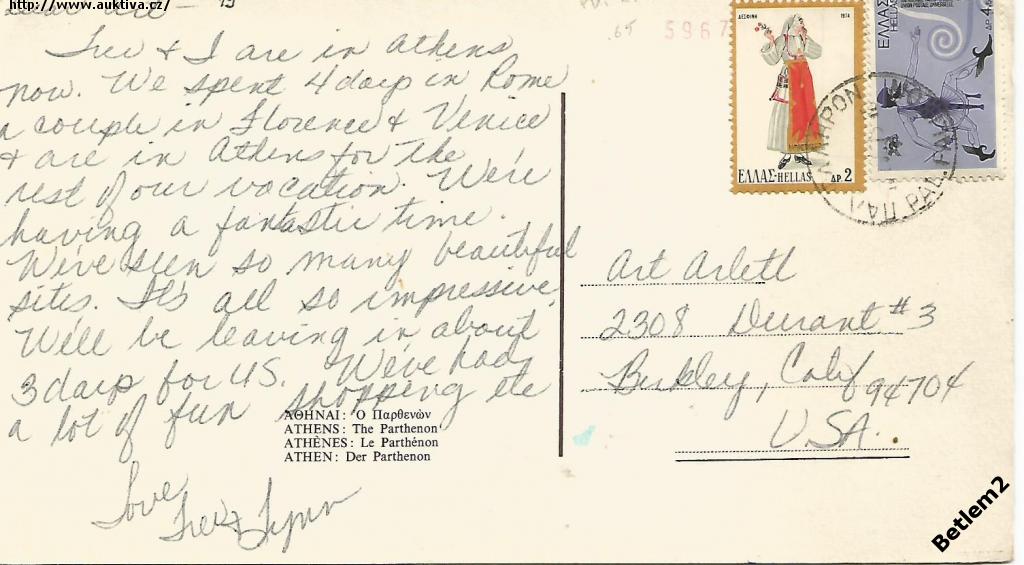 http://www.auktiva.cz/
& I are in Athens
now. We spent 4 days in Rome
a couple in Florence & Venice
& are in Athens for the
rest of our vacation. We're
having a fantastic time.
We've seen so many beautiful
sites. It's all so impressive.
We'll be leaving in about
3 days for US. We've had
a lot of fun shopping etc
Love
& Lynn
ΑΘΗΝΑΙ: Ὁ Παρθενών
ATHENS: The Parthenon
ATHÈNES: Le Parthénon
ATHEN: Der Parthenon
.65
5967
ΔΕΣΦΙΝΑ 1974
ΕΛΛΑΣ-HELLAS ΔΡ. 2
ΕΛΛΑΣ
HELLAS
ΔΡ. 4
Art Arlett
2308 Durant #3
Berkley, Calif 94704
USA.
Betlem2